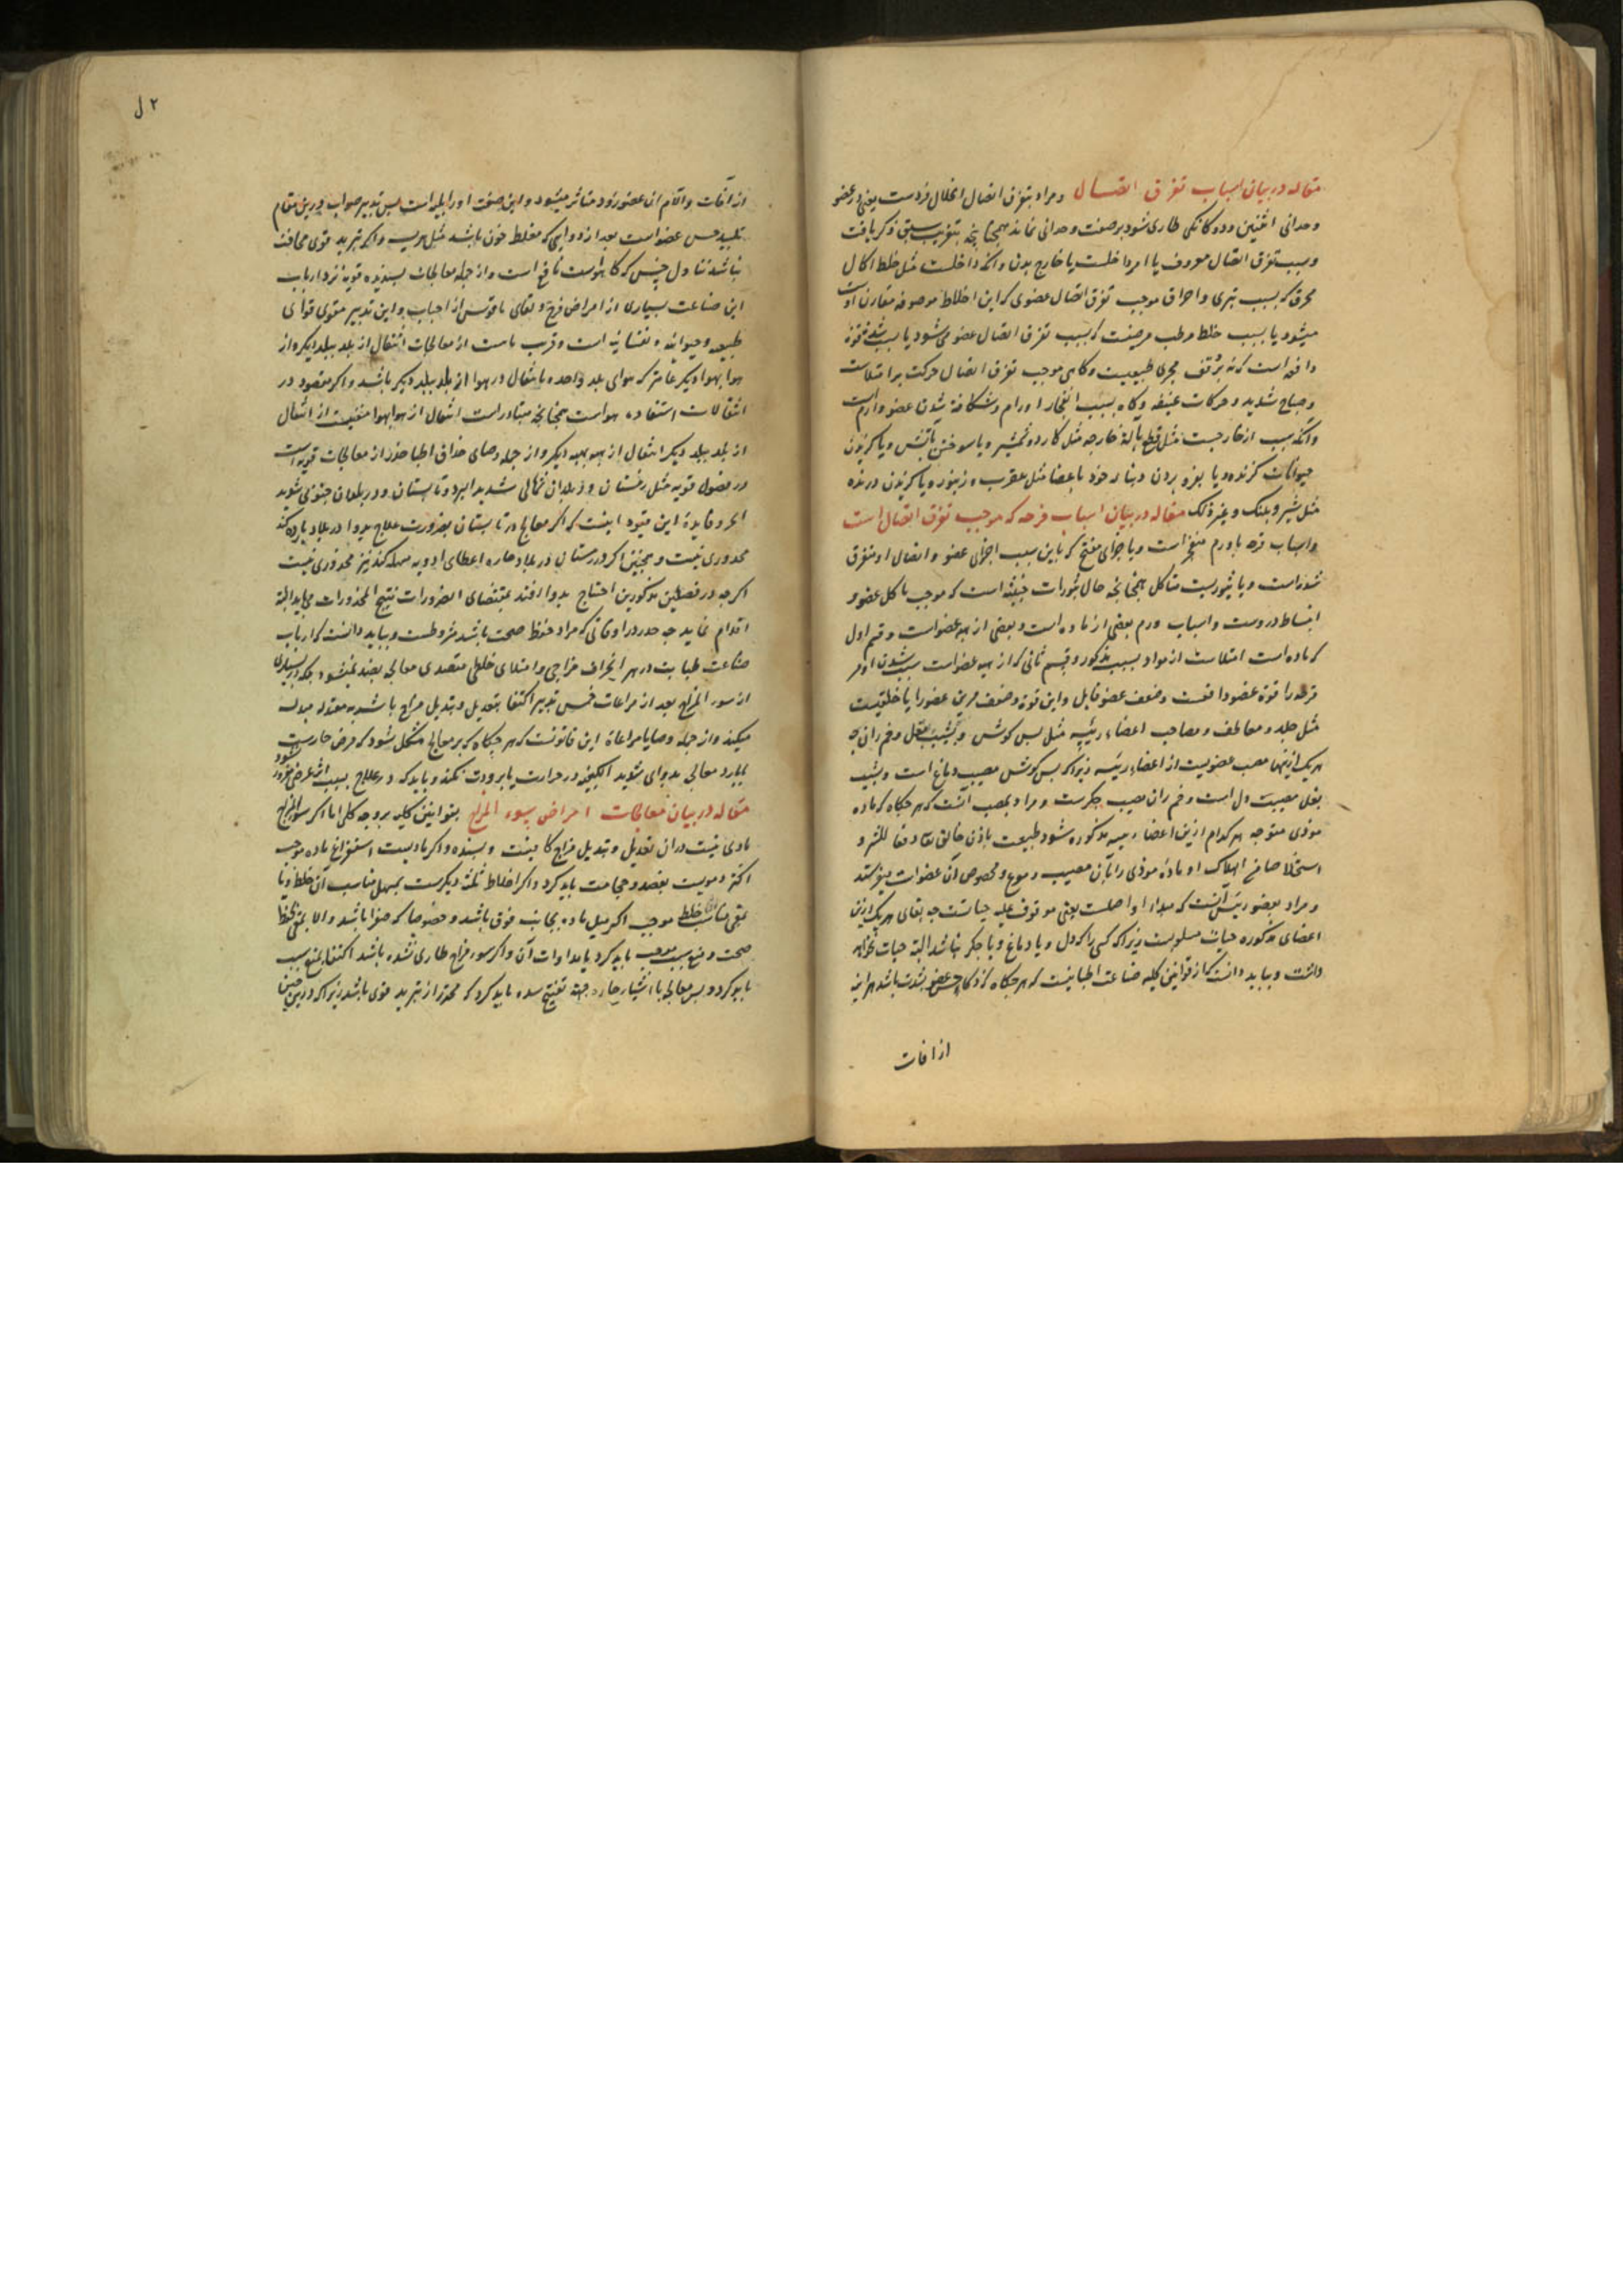 مقاله در بیان اسباب تفرق اتصال و مراد بتفرق اتصال انحلال فردست یعنی در عضو
وحدانی اثنین و دوکانکی طاری شود بر صفت وحدانی نماند همچنانچه بتقریب سبق ذکر یافت
و سبب تفرق اتصال معروف یا امر داخلست یا خارج بدن و انکه داخلست مثل خلط اکال
محرق که بسبب تبری و احراق موجب تفرق اتصال عضوی که این اخلاط موصوفه مقارن اوست
میشود یا بسبب خلط مرطب مرضیست که بسبب تفرق اتصال عضو می شود یا بسبب شدت قوة
دافعه است که نه برقف مجری طبیعیست و کاهی موجب تفرق اتصال حرکت بر امتلاست
و صیاح شدید و حرکات عنیفه و کاه بسبب انفجار اورام و شکافته شدن عضو وارم است
و آنکه سبب از خارجست مثل قطع بآلة خارجه مثل کارد و شمشیر و یا سوختن بآتش و یا کزیدن
حیوانات کزنده و یا بفرو بردن دنباله خود باعضا مثل عقرب و زنبور و یا کزیدن درنده
مثل شیر و پلنک و غیر ذلک مقاله در بیان اسباب قرحه که موجب تفرق اتصال است
و اسباب قرحه یا ورم منفجر است و یا جراحی مفتح که باین سبب اجزای عضو و اتصال او متفرق
شده است و یا بثوریست متاکل همچنانچه حال بثورات خبیثه است که موجب تاکل عضو و
انبساط دروست و اسباب ورم بعضی از ماده است و بعضی از هیه عضو است و قسم اول
که ماده است امتلاست از مواد بسبب مذکور و قسم ثانی که از هیه عضو است سبب شدن او مر
قرحه را قوة عضو دافعست و ضعف عضو قابل و این قوة و ضعف مرین عضو را یا خلقیست
مثل جلد و معاطف و مصاحب اعضاء رئیسه مثل پس کوش و پشیب بغل و خم ران چه
هریک ازینها مصب عضویست از اعضاء رئیسه زیرا که پس کوش مصب دماغ است و پشیب
بغل مصبت دل است و خم ران مصب جکرست و مراد بمصب آنست که هر جکاه که ماده
موذی متوجه هر کدام ازین اعضاء رئیسه مذکوره شود طبیعت باذن خالق تعالی دفعا للشر و
استخلاصا من الهلاک او ماده موذی را بآن مصب رجوع و مخصوص آن عضوات میفرستد
و مراد بعضو رئیس آنست که مبداء او اصلست یعنی موقوف علیه حیاتست چه بقای هریک ازین
اعضای مذکوره حیات مسلوبست زیرا که کسی را که دل و یا دماغ و یا جکر نباشد البته حیات نخواهد
داشت و بباید دانست که از قوانین کلیه صناعت اطبا اینست که هر جکاه که ذکاء حس عضو بشدت باشد هر آینه
از افات
۲ ل
از آفات و آلام ان عضو زود متاثر میشود و این صفت او را بلیه است پس تدبیر صواب درین مقام
تلبید حس عضو است بعد از دوایی که مغلظ خون باشد مثل هریسه و اکر تبرید قوی مخافت
نباشد تناول خس که کاهوست نافع است و از جمله معالجات پسندیده قویه نزد ارباب
این صناعت بسیاری از امراض فرح و لقای مانوس از احباب و این تدبیر مقوی قوای
طبیعه و حیوانیه و نفسانیه است و قریب باست از معالجات انتقال از بلد ببلد دیکر و از
هوا بهوا دیکر عامتر که هوای بلد واحده یا انتقال در هوا از بلد ببلد دیکر باشد و اکر مقصود در
انتقالات استفاده هواست همچنانچه متبادر است انتقال از هوا بهوا منفیست از انتقال
از بلد ببلد دیکر انتقال از هیه بهیه دیکر و از جمله وصایای حذاق اطبا حذر از معالجات قویه است
در فصول قویه مثل زمستان و در بلدان شمالی شدید البرد و تابستان و در بلدان جنوبی شدید
الحر و فایدهٔ این قیود اینست که اکر معالج در تابستان بضرورت علاج بدوا در بلاد بارده کند
محذوری نیست و همچنین اکر در زمستان در بلاد حاره اعطای ادویه مسهله کند نیز محذوری نیست
اکرچه در فصلین مذکورین احتیاج بدوا افتد بمقتضای الضرورات تبیح المحذورات می باید البته
اقدام نماید چه حذر در اوقاتی که مراد حفظ صحت باشد مشروطست و بباید دانست که ارباب
صناعت طبابت در هر انحراف مزاجی و امتلای خلطی متصدی معالجه بضد نمیشود بلکه در بسیاری
از سوء المزاج بعد از مراعات خمس تدبیر اکتفا بتعدیل و تبدیل مزاج باشد به معتدله مبدله
میکند و از جمله وصایا مراعاة این قانونست که هر جکاه که بر معالج مشکل شود که مرض حارست
یا بارد معالج بدوای شدید الکیفیه در حرارت یا برودت نکند و باید که در علاج بسبب اثر عرضی مغرور نشود
مقاله در بیان معالجات امراض سوء المزاج بقوانین کلیه بر وجه کلی اما اکر سوء المزاج
مادی نیست دران تعدیل و تبدیل مزاج کافیست و بسنده و اکر مادیست استفراغ ماده موجب
اکثر دمویست بفصد و حجامت باید کرد و اکر اخلاط ثلثه دیکرست بمسهل مناسب آن خلط و یا
بقی مناسب خلط موجب اکر میل ماده بجانب فوق باشد و خصوصا که صفرا باشد و الا بقی حفظ
صحت و منع سبب موجب باید کرد یا مداوات آن و اکر سوء مزاج طاری نشده باشد اکتفا بمنع سبب
باید کرد و پس معالجه با اشیاء حاره جهة تفتیح سده باید کرد که محترز از تبرید قوی باشد زیرا که درین حین